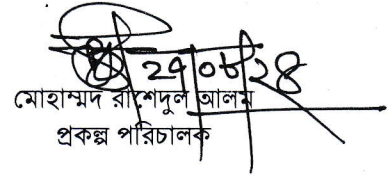 ২৭|০৮|২৪
মোহাম্মদ রাশেদুল আলম
প্রকল্প পরিচালক